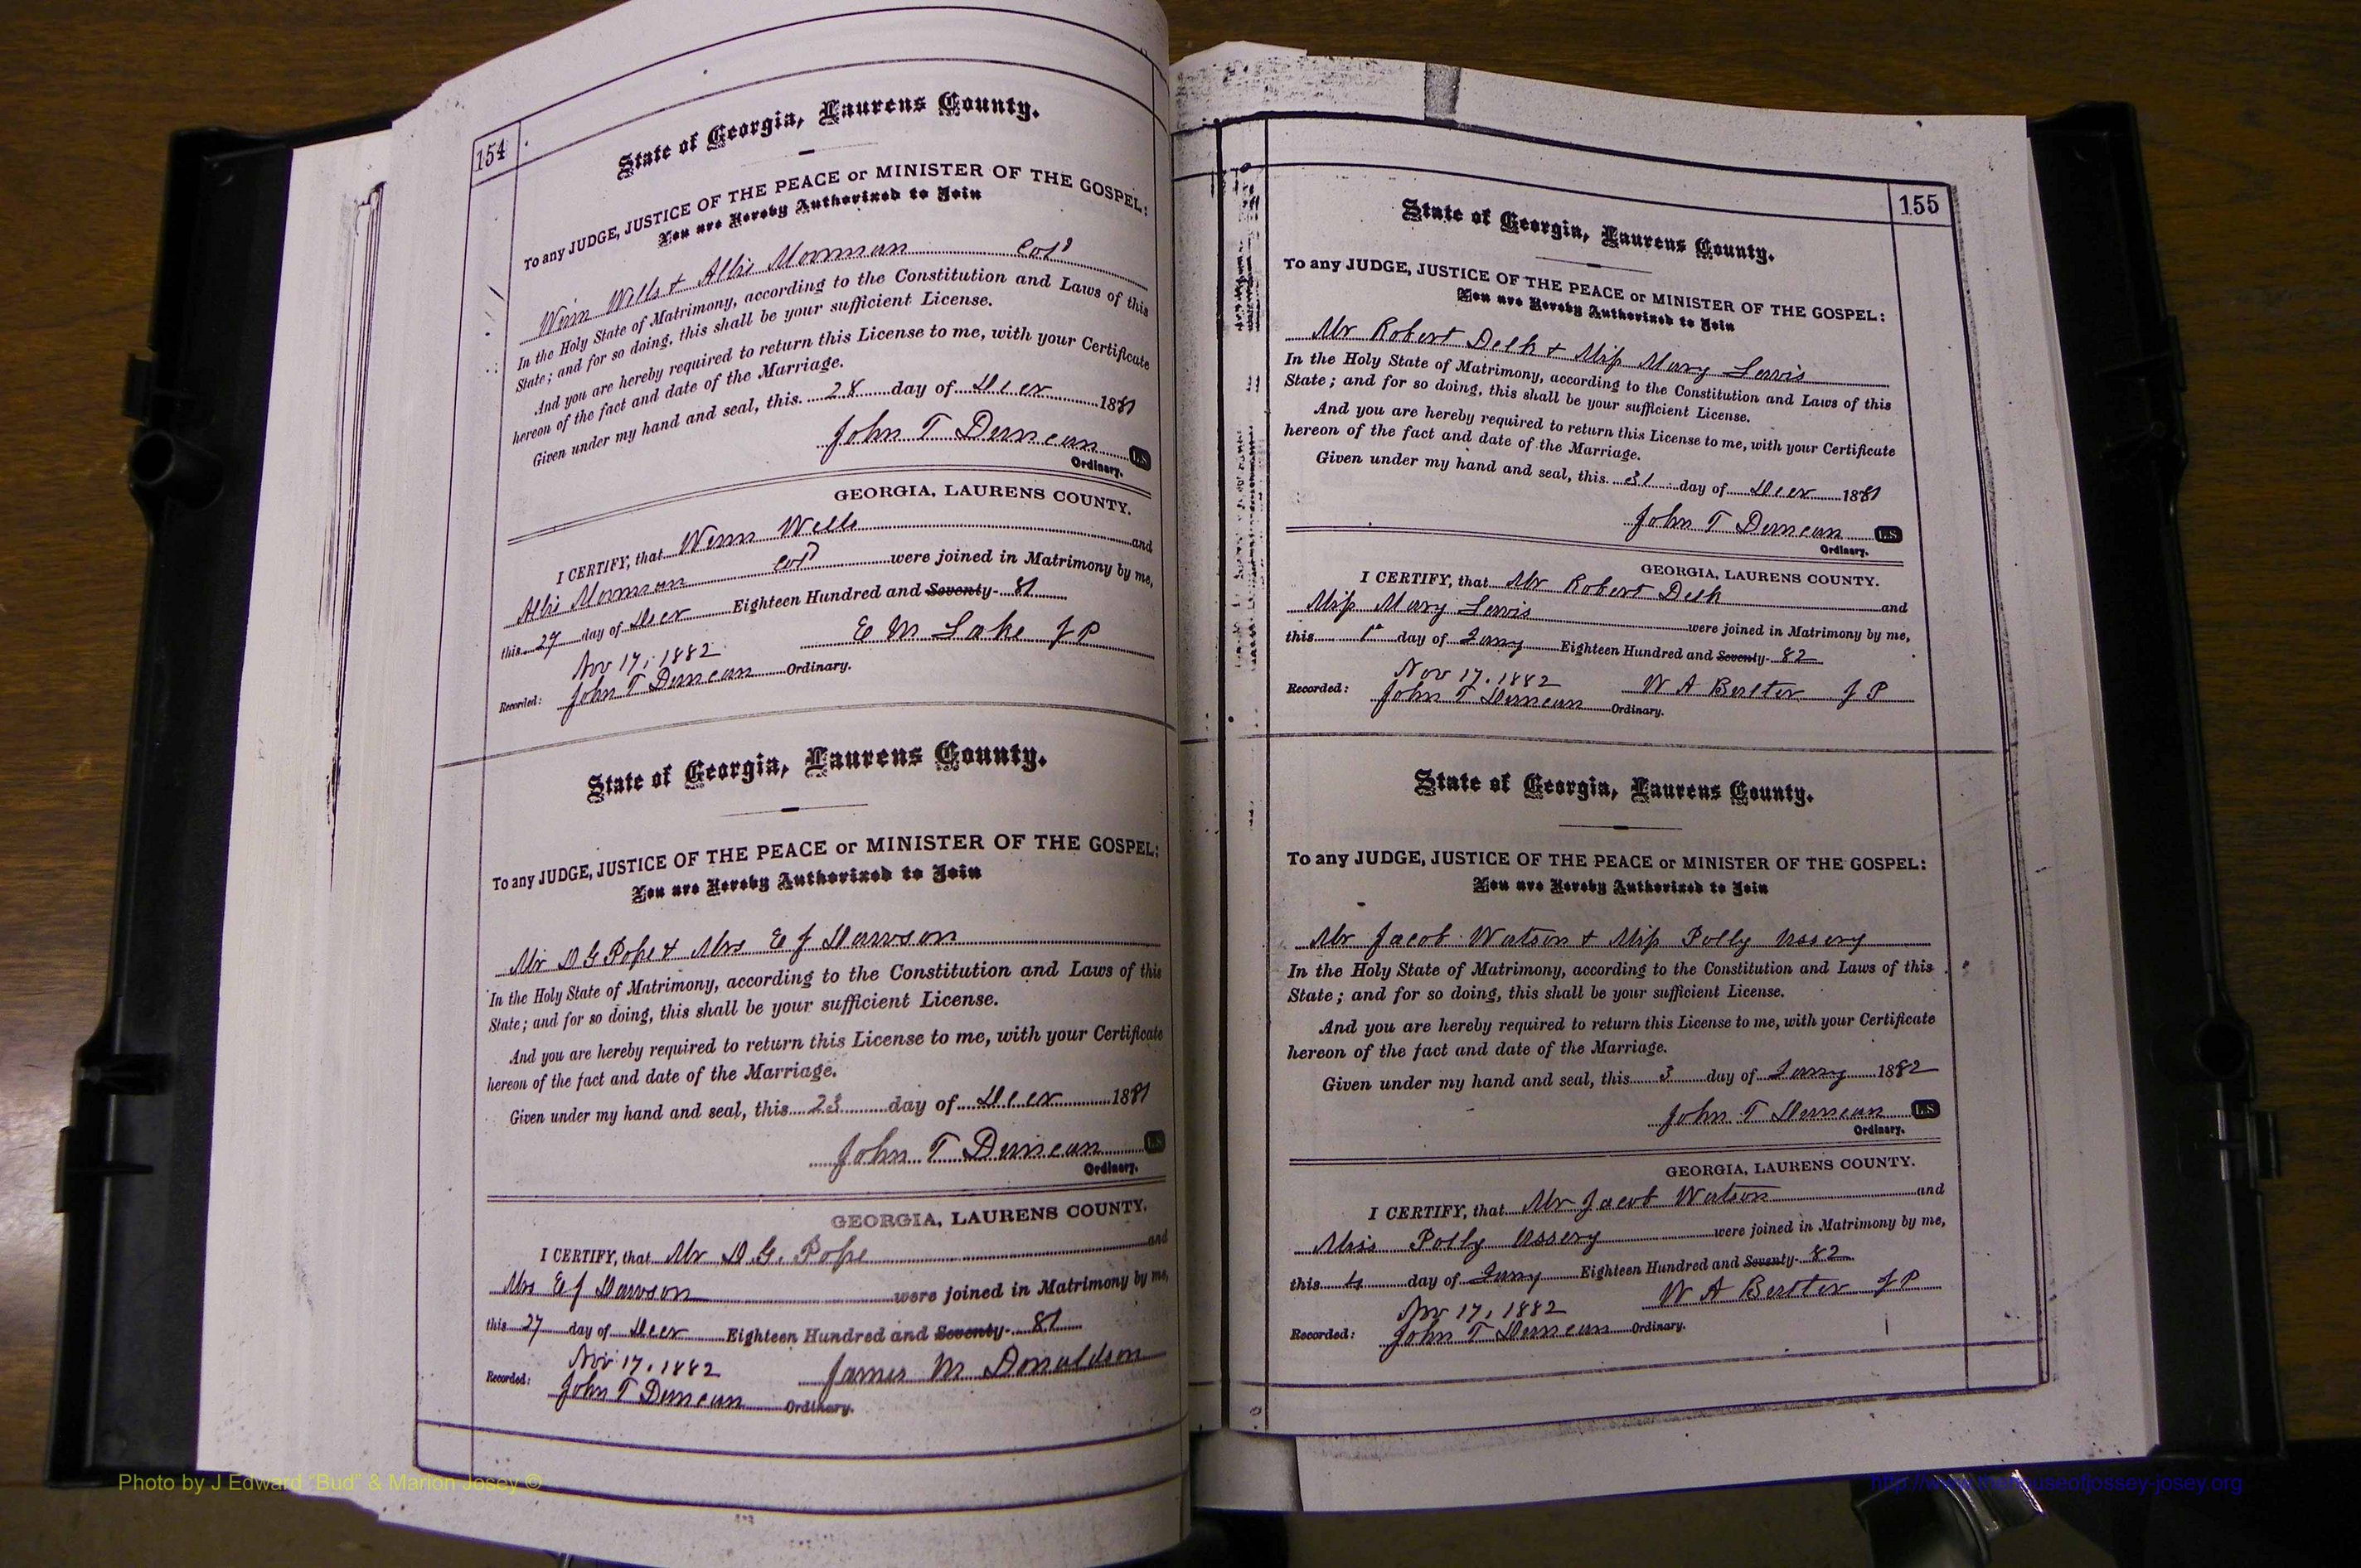 154
State of Georgia, Laurens County.
To any JUDGE, JUSTICE OF THE PEACE or MINISTER OF THE GOSPEL:
You are Hereby Authorized to Join
Winn Wells & Allie Monman Col'd
In the Holy State of Matrimony, according to the Constitution and Laws of this
State; and for so doing, this shall be your sufficient License.
And you are hereby required to return this License to me, with your Certificate
hereon of the fact and date of the Marriage.
Given under my hand and seal, this 28 day of Decr 1881
John T Duncan L.S.
Ordinary.
GEORGIA, LAURENS COUNTY.
I CERTIFY, that Winn Wells and
Allie Monman col'd were joined in Matrimony by me,
this 27 day of Decr Eighteen Hundred and Seventy- 81
E M Lake J P
Nov 17, 1882
Recorded: John T Duncan Ordinary.
State of Georgia, Laurens County.
To any JUDGE, JUSTICE OF THE PEACE or MINISTER OF THE GOSPEL:
You are Hereby Authorized to Join
Mr D G Pope & Mrs E J Dawson
In the Holy State of Matrimony, according to the Constitution and Laws of this
State; and for so doing, this shall be your sufficient License.
And you are hereby required to return this License to me, with your Certificate
hereon of the fact and date of the Marriage.
Given under my hand and seal, this 23 day of Decr 1881
John T Duncan L.S.
Ordinary.
GEORGIA, LAURENS COUNTY.
I CERTIFY, that Mr D. G. Pope and
Mrs E J Dawson were joined in Matrimony by me,
this 27 day of Decr Eighteen Hundred and Seventy- 81
Nov 17, 1882 James M Donaldson
Recorded: John T Duncan Ordinary.
155
State of Georgia, Laurens County.
To any JUDGE, JUSTICE OF THE PEACE or MINISTER OF THE GOSPEL:
You are Hereby Authorized to Join
Mr Robert Delk & Miss Mary Lewis
In the Holy State of Matrimony, according to the Constitution and Laws of this
State; and for so doing, this shall be your sufficient License.
And you are hereby required to return this License to me, with your Certificate
hereon of the fact and date of the Marriage.
Given under my hand and seal, this 31 day of Decr 1881
John T Duncan L.S.
Ordinary.
GEORGIA, LAURENS COUNTY.
I CERTIFY, that Mr Robert Delk and
Miss Mary Lewis were joined in Matrimony by me,
this 1st day of Jany Eighteen Hundred and Seventy- 82
Nov 17, 1882 W A J P
Recorded: John T Duncan Ordinary.
State of Georgia, Laurens County.
To any JUDGE, JUSTICE OF THE PEACE or MINISTER OF THE GOSPEL:
You are Hereby Authorized to Join
Mr Jacob Watson & Miss Polly Ussery
In the Holy State of Matrimony, according to the Constitution and Laws of this
State; and for so doing, this shall be your sufficient License.
And you are hereby required to return this License to me, with your Certificate
hereon of the fact and date of the Marriage.
Given under my hand and seal, this 3 day of Jany 1882
John T Duncan L.S.
Ordinary.
GEORGIA, LAURENS COUNTY.
I CERTIFY, that Mr Jacob Watson and
Miss Polly Ussery were joined in Matrimony by me,
this 4 day of Jany Eighteen Hundred and Seventy- 82
Nov 17, 1882 W A J P
Recorded: John T Duncan Ordinary.
Photo by J Edward "Bud" & Marion Josey ©
http://www.thehouseofjossey-josey.org